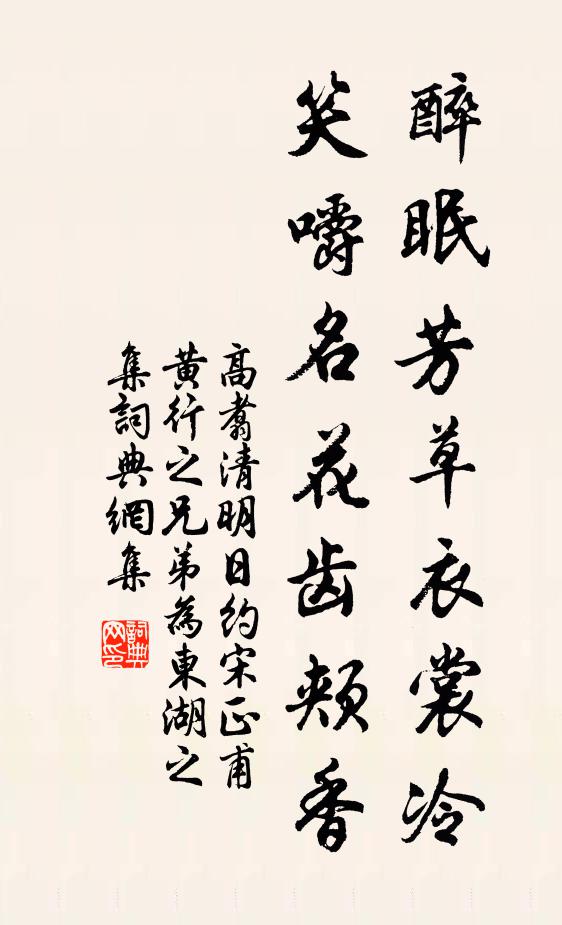 醉眠芳草衣裳冷
笑嚼名花齿颊香
高翥清明日約宋正甫
黄行之兄弟為東湖之
集詞典網集
詞典
网印